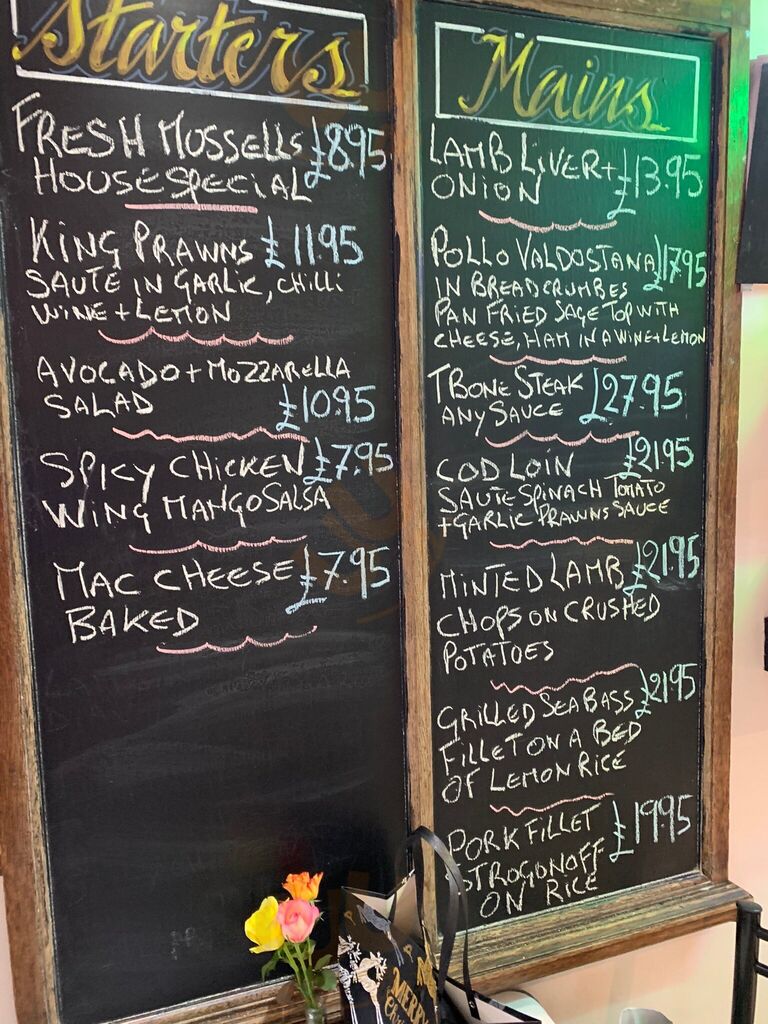 Starters
FRESH MUSSELLS £8.95
HOUSE SPECIAL
KING PRAWNS £11.95
SAUTE IN GARLIC, CHILLI
WINE + LEMON
AVOCADO + MOZZARELLA
SALAD £10.95
SPICY CHICKEN £7.95
WING MANGO SALSA
MAC CHEESE £7.95
BAKED
Mains
LAMB LIVER + £13.95
ONION
POLLO VALDOSTANA £17.95
IN BREADCRUMBES
PAN FRIED SAGE TOP WITH
CHEESE, HAM IN A WINE + LEMON
TBONE STEAK £27.95
ANY SAUCE
COD LOIN £21.95
SAUTE SPINACH TOMATO
+ GARLIC PRAWNS SAUCE
MINTED LAMB £21.95
CHOPS ON CRUSHED
POTATOES
GRILLED SEA BASS £21.95
FILLET ON A BED
OF LEMON RICE
PORK FILLET £19.95
STROGONOFF
ON RICE
MERRY